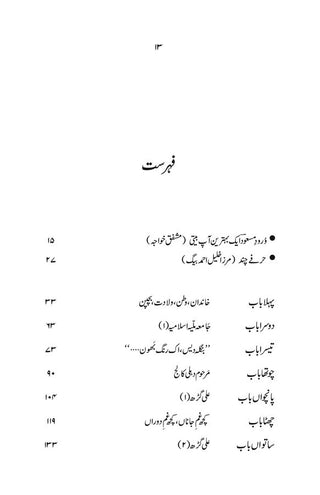 ۱۳
فہرست
● ورودِ مسعود ایک بہترین آپ بیتی (مشفق خواجہ) ۱۵
● حرفے چند (مرزا خلیل احمد بیگ) ۲۷
پہلا باب خاندان، وطن، ولادت، بچپن ۳۳
دوسرا باب جامعہ ملیہ اسلامیہ (۱) ۶۳
تیسرا باب ”بنگلہ دیس، اک رنگ بھون....“ ۷۳
چوتھا باب مرحوم دہلی کالج ۹۰
پانچواں باب علی گڑھ (۱) ۱۰۴
چھٹا باب کچھ غمِ جاناں، کچھ غمِ دوراں ۱۱۹
ساتواں باب علی گڑھ (۲) ۱۳۳